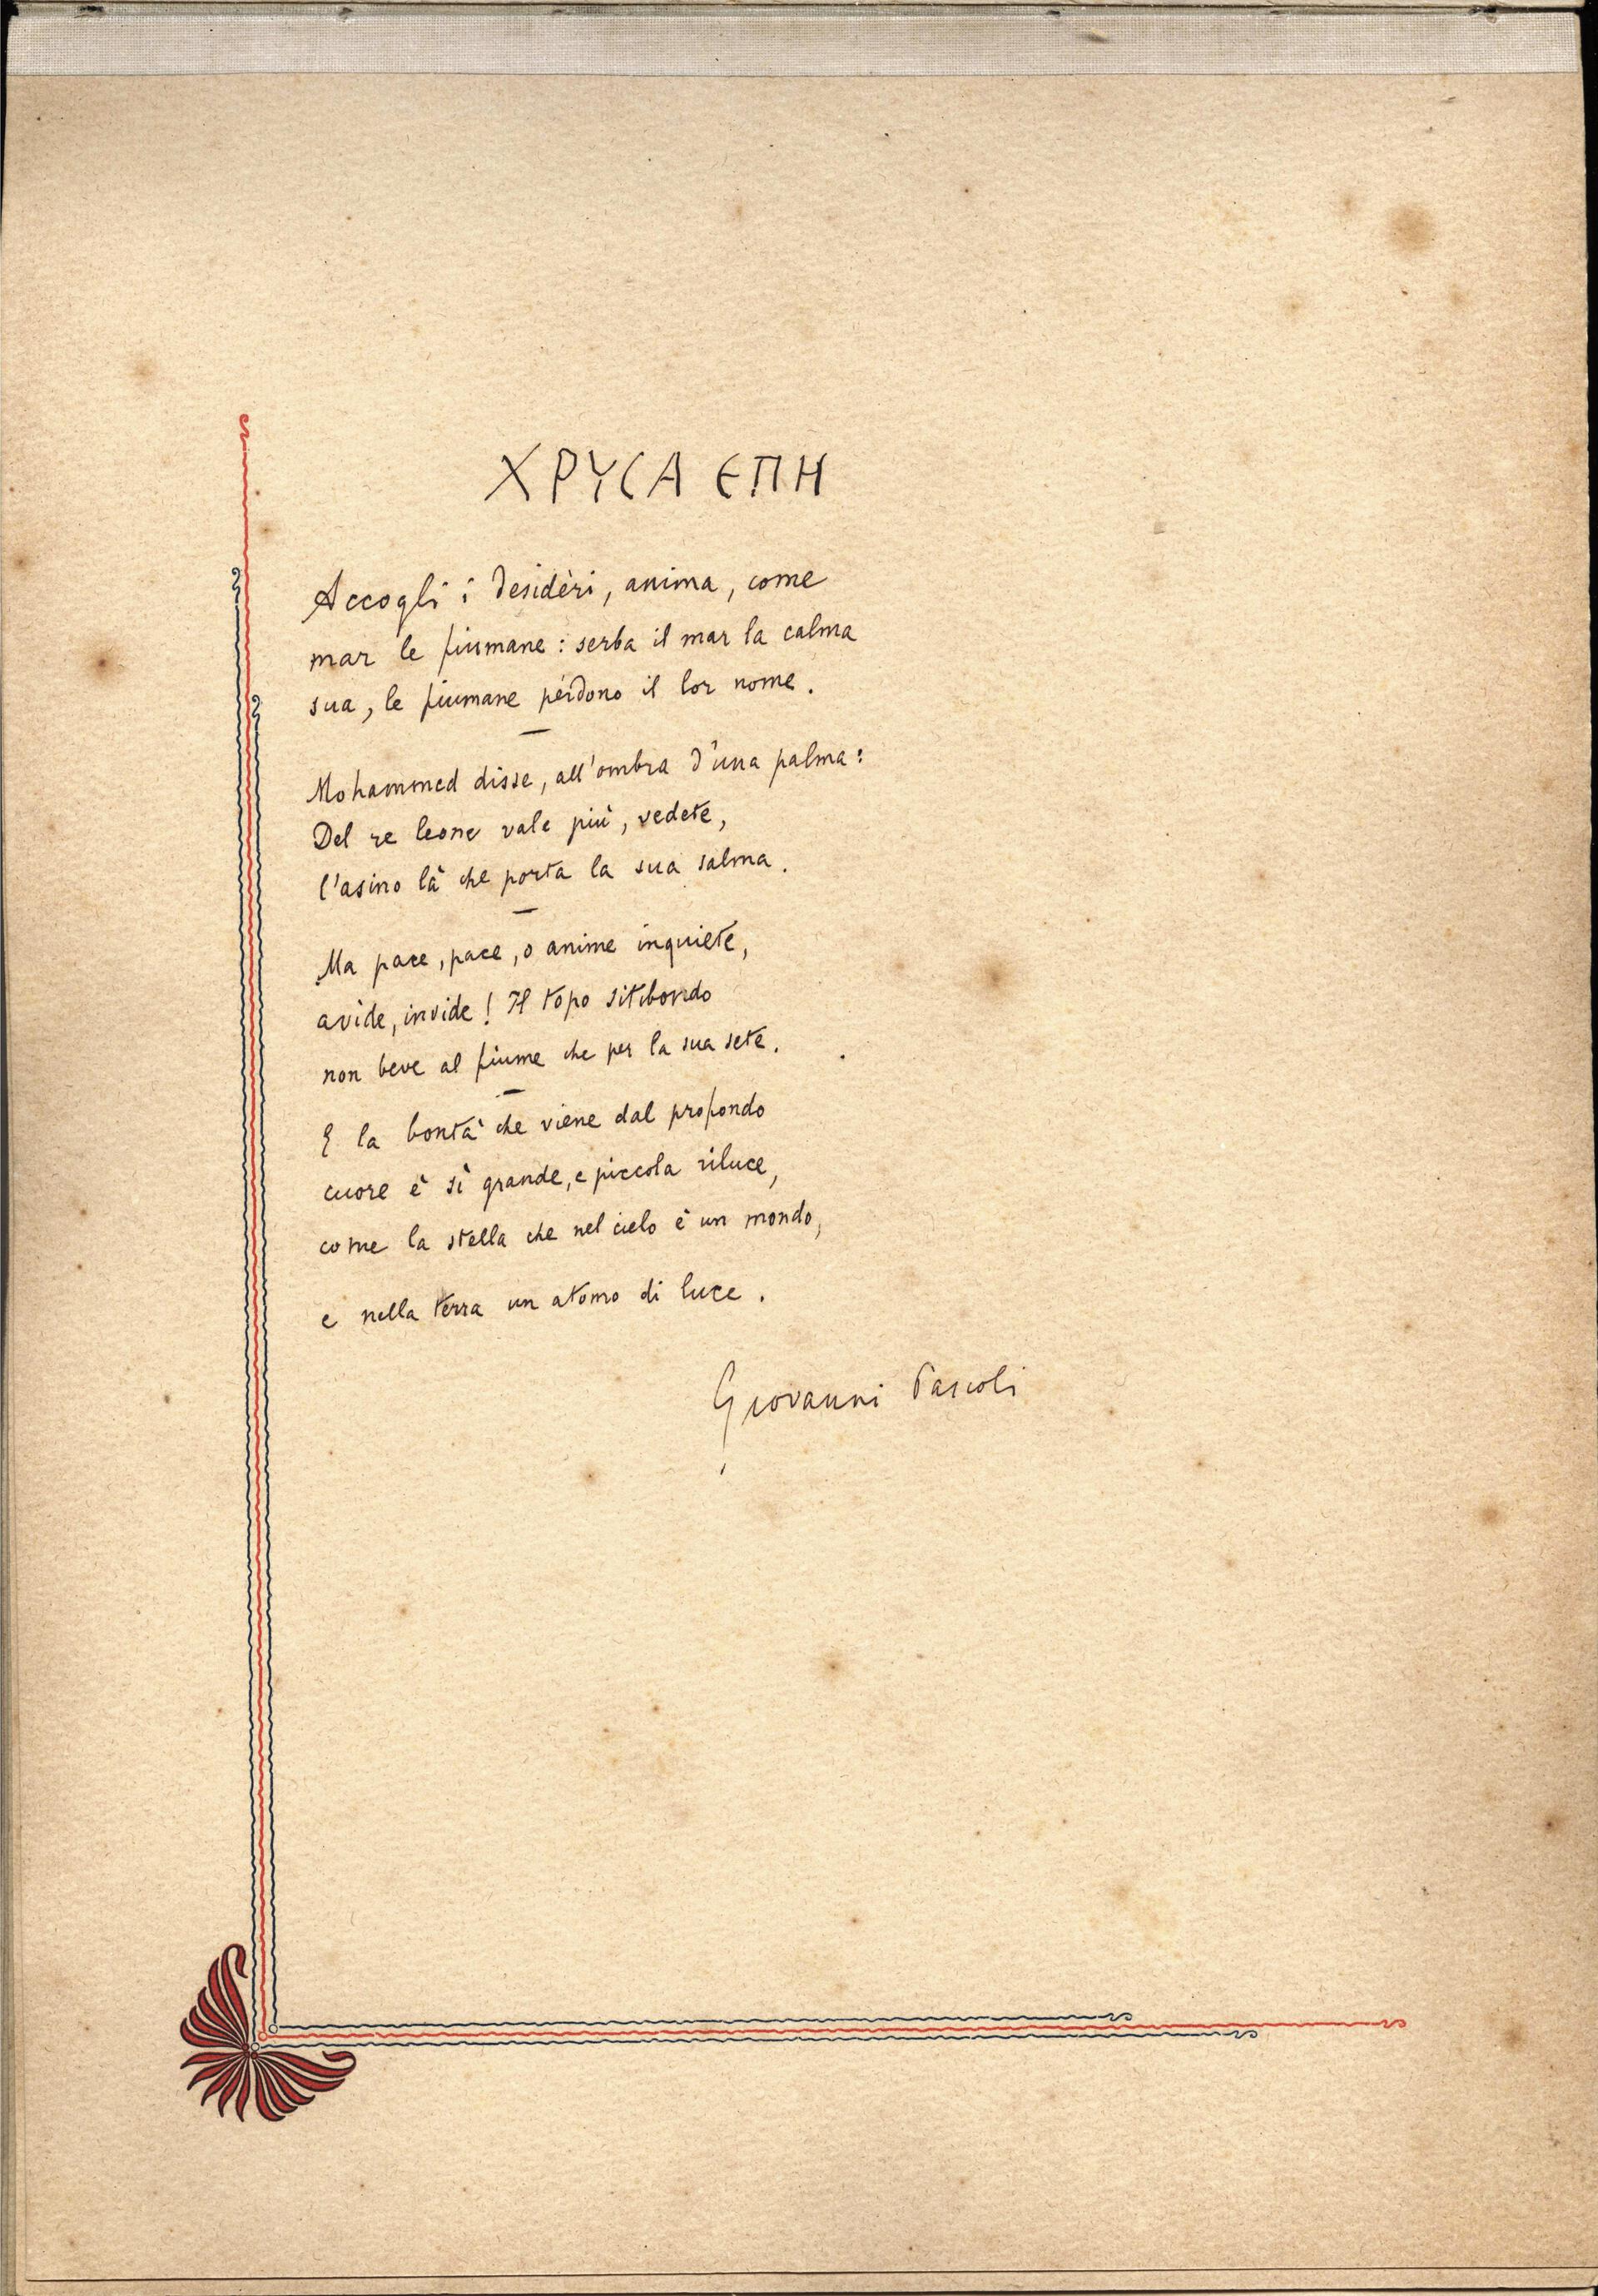 ΧΡΥCΑ ЄΠΗ
Accogli i desidèri, anima, come
mar le fiumane: serba il mar la calma
sua, le fiumane pérdono il lor nome.
Mohammed disse, all'ombra d'una palma:
Del re leone vale più, vedete,
l'asino là che porta la sua salma.
Ma pace, pace, o anime inquiete,
avide, invide! Il topo sitibondo
non beve al fiume che per la sua sete.
E la bontà che viene dal profondo
cuore è sì grande, e piccola riluce,
come la stella che nel cielo è un mondo,
e nella terra un atomo di luce.
Giovanni Pascoli